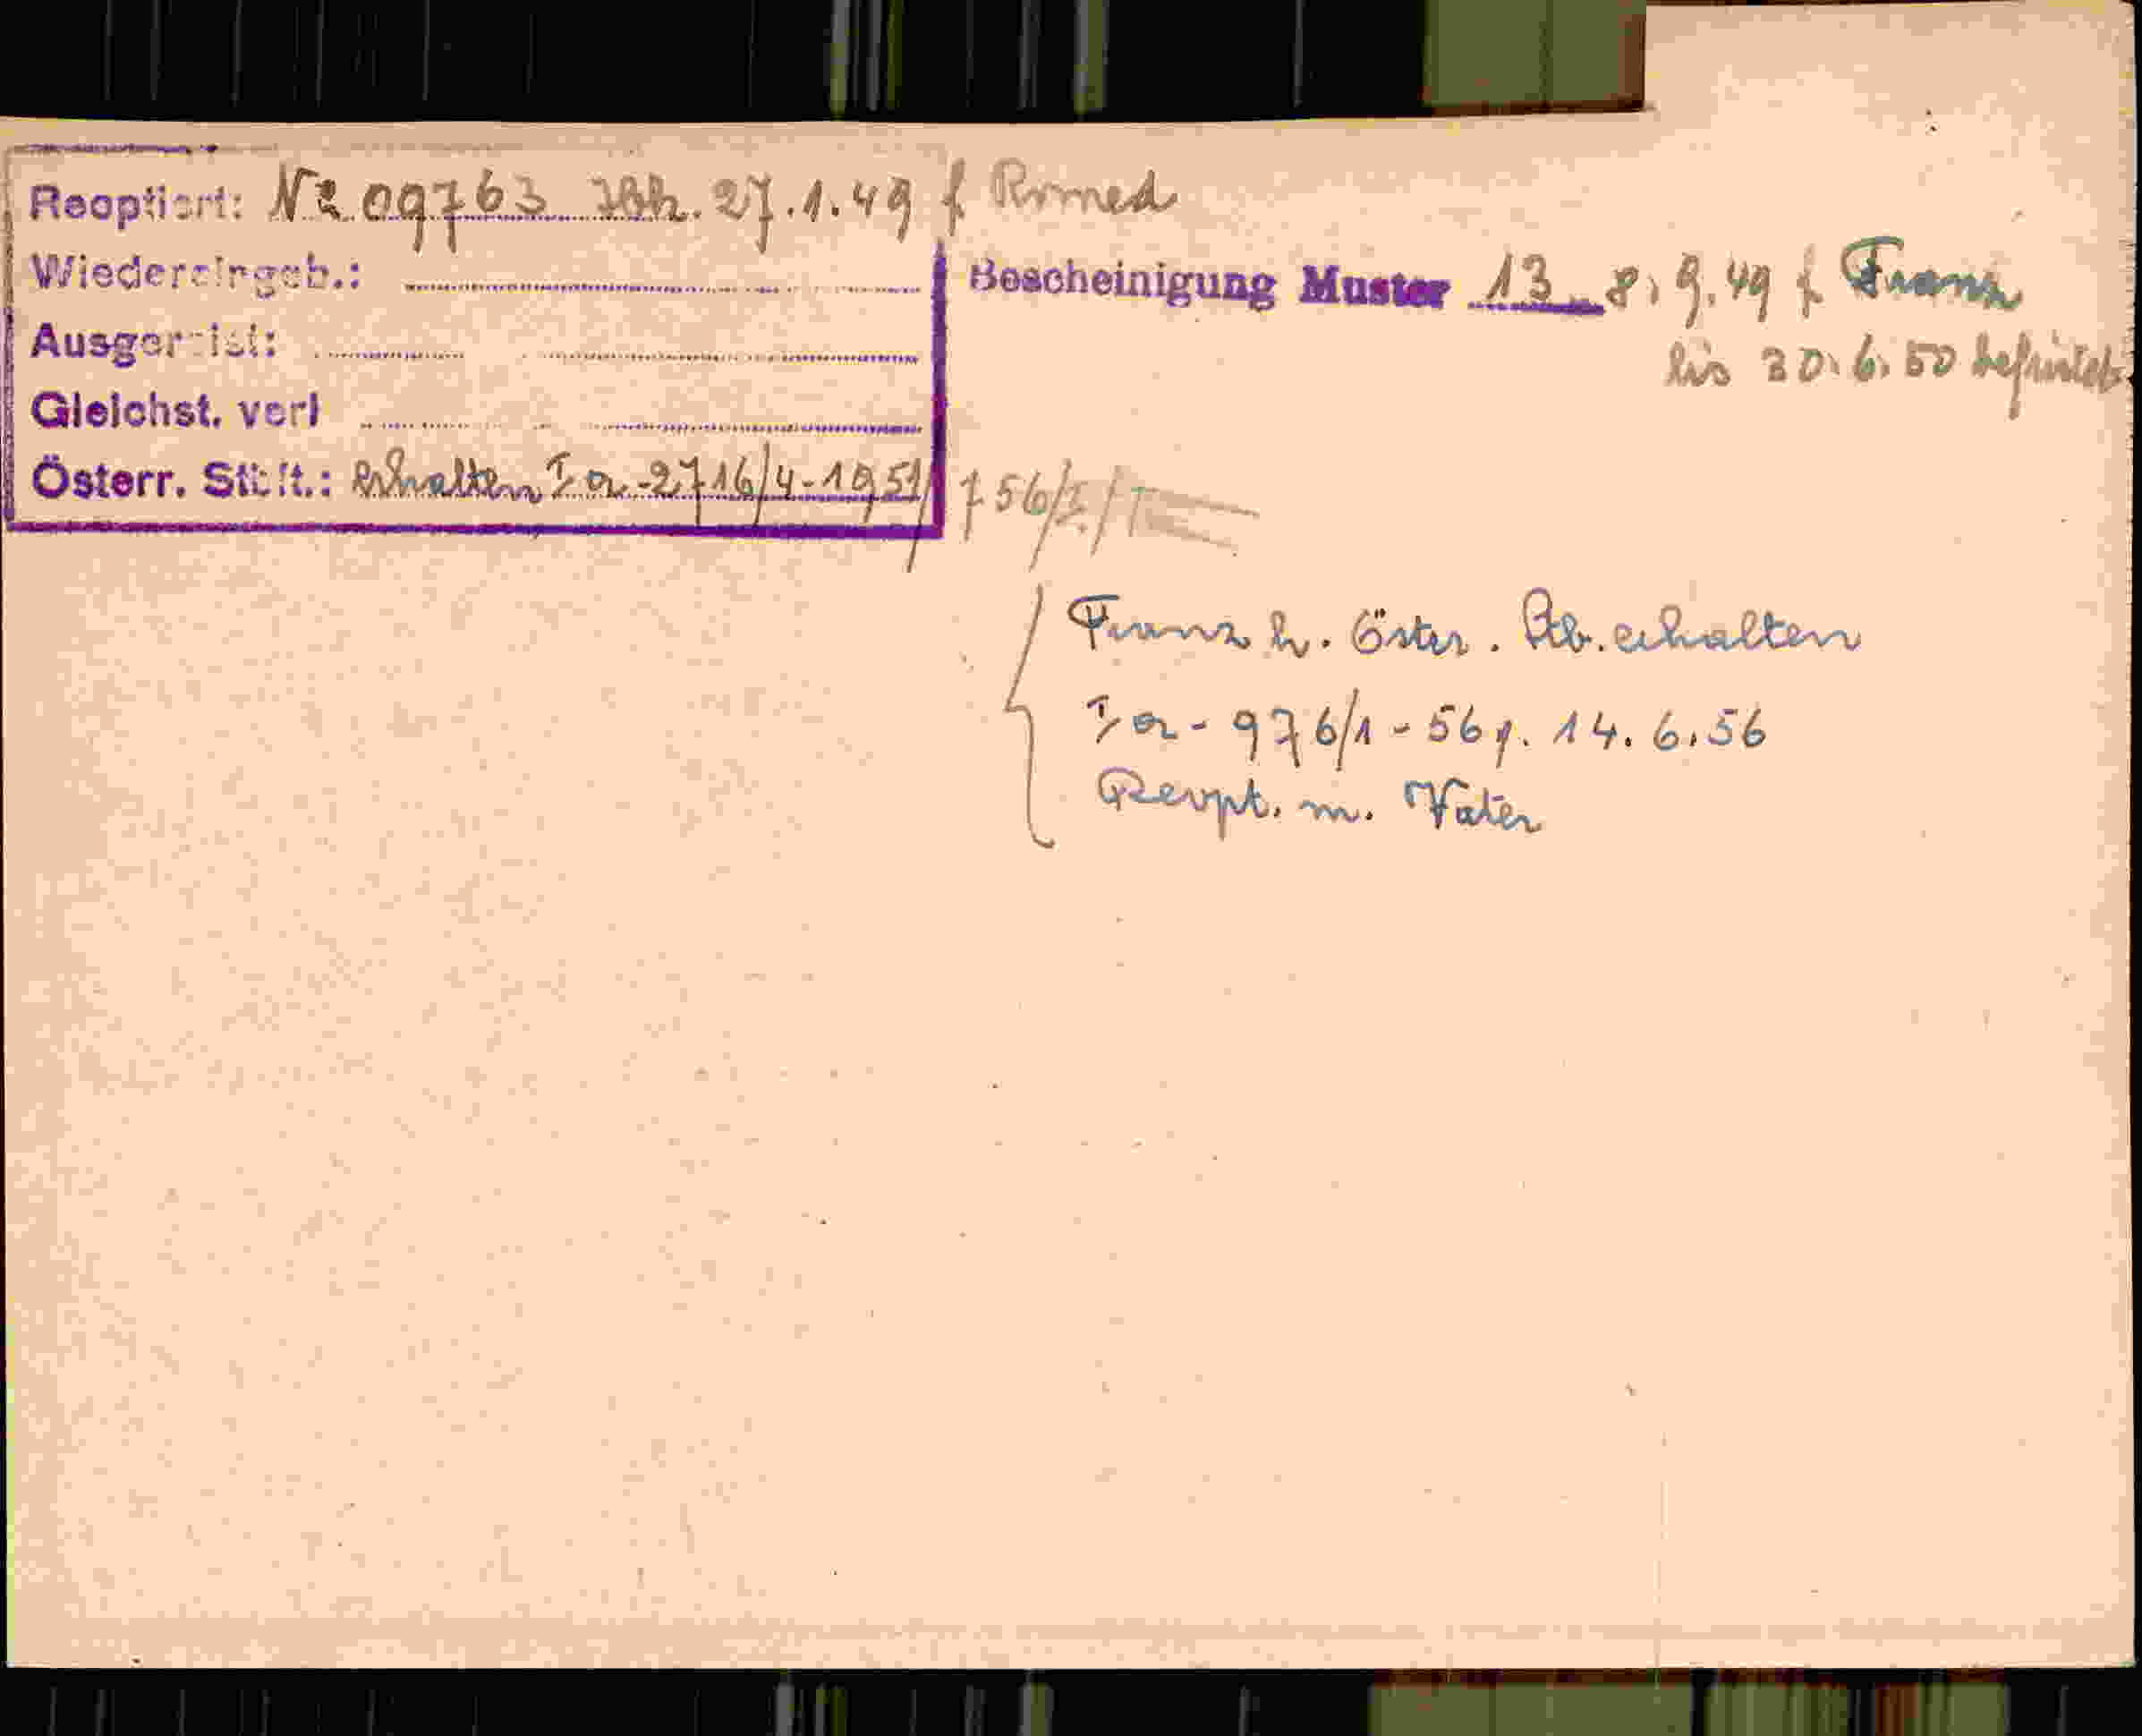 Reoptiert: No 09763 Ibk. 27.1.49 f Romed
Wiedereingeb.:
Bescheinigung Muster 13 8.9.49 f Franz
bis 30.6.50 befristet
Ausgereist:
Gleichst. verl
Österr. Stbft.: erhalten Ia-2716/4-1951/
756/I/
Franz h. Öster. Stb. erhalten
Ia-976/1-56 v. 14.6.56
Reopt. m. Vater